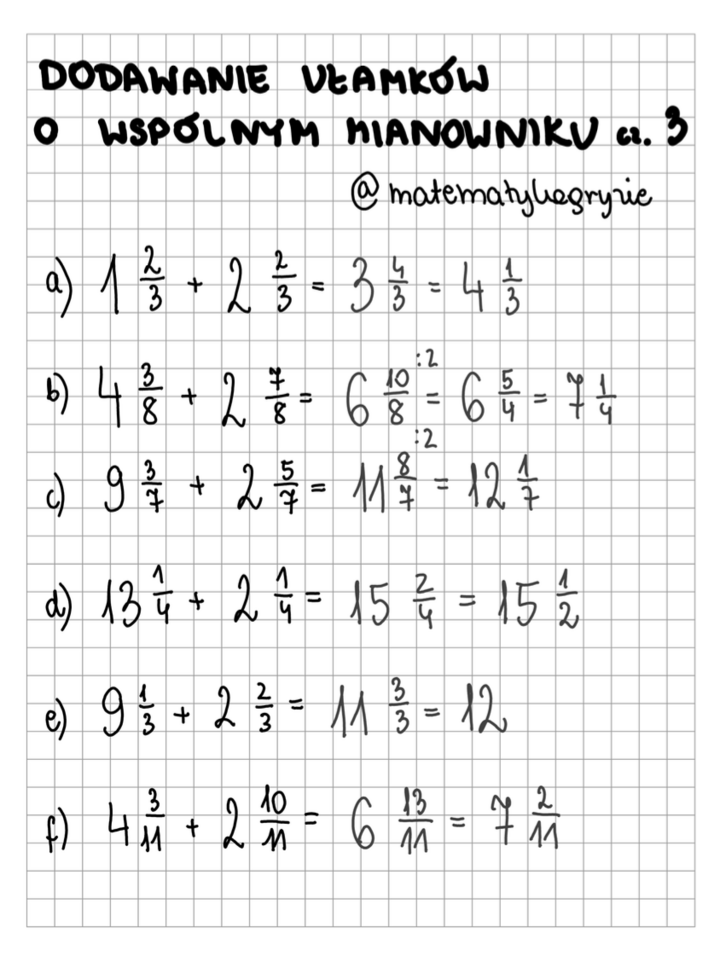 DODAWANIE UŁAMKÓW
O WSPÓLNYM MIANOWNIKU cz. 3
@matematykagryzie
a) 1 2/3 + 2 2/3 = 3 4/3 = 4 1/3
b) 4 3/8 + 2 7/8 = 6 10/8 :2 :2 = 6 5/4 = 7 1/4
c) 9 3/7 + 2 5/7 = 11 8/7 = 12 1/7
d) 13 1/4 + 2 1/4 = 15 2/4 = 15 1/2
e) 9 1/3 + 2 2/3 = 11 3/3 = 12
f) 4 3/11 + 2 10/11 = 6 13/11 = 7 2/11